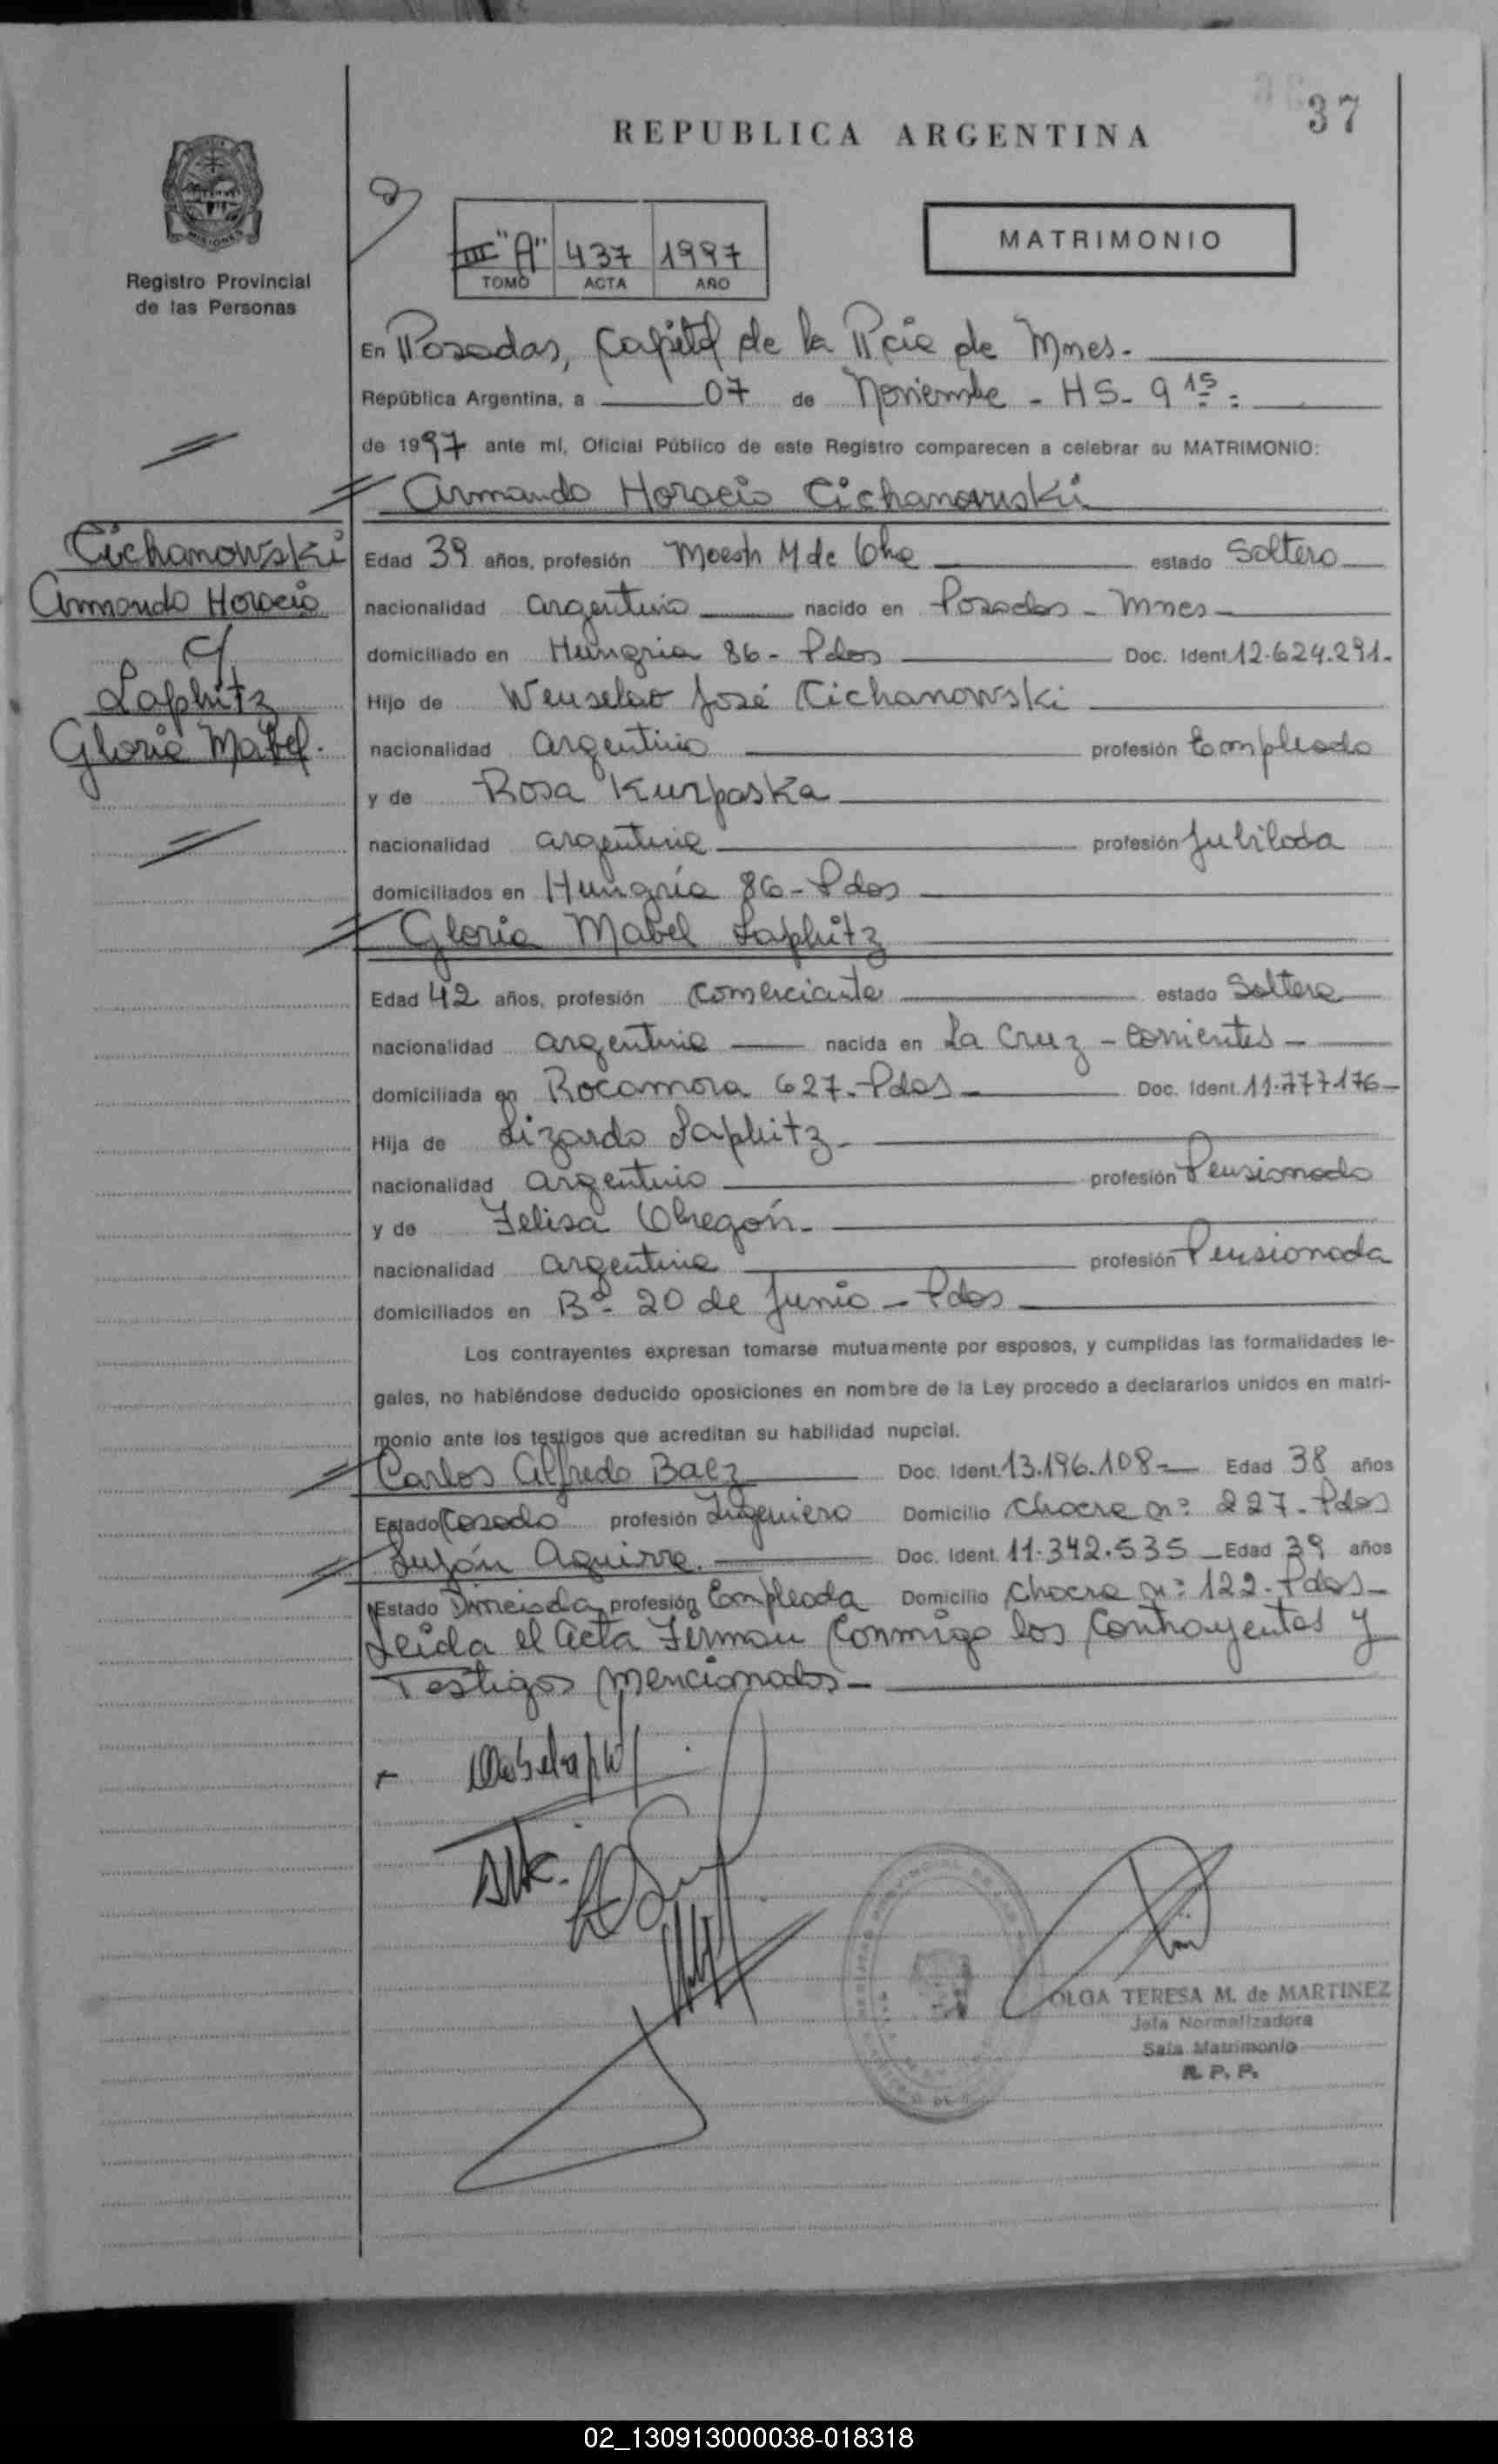 37
REPUBLICA ARGENTINA
MISIONES
Registro Provincial
de las Personas
III "A" 437 1997
TOMO ACTA AÑO
MATRIMONIO
En Posadas, Capital de la Pcia de Mnes.
República Argentina, a 07 de Noviembre - HS- 9 15
de 1997 ante mí, Oficial Público de este Registro comparecen a celebrar su MATRIMONIO:
Armando Horacio Cichanowski
Cichanowski
Armando Horacio
c/
Laphitz
Gloria Mabel.
Edad 39 años, profesión M de estado Soltero
nacionalidad argentino nacido en Posadas - Mnes
domiciliado en Hungria 86 - Pdas Doc. Ident. 12.624.291.
Hijo de Wenselao José Cichanowski
nacionalidad argentino profesión Empleado
y de Rosa Kurpaska
nacionalidad argentina profesión Jubilada
domiciliados en Hungría 86 - Pdas
Gloria Mabel Laphitz
Edad 42 años, profesión Comerciante estado Soltera
nacionalidad argentina nacida en La Cruz - Corrientes -
domiciliada en Rocamora 627 - Pdas Doc. Ident. 11.777176
Hija de Lizardo Laphitz
nacionalidad argentino profesión Pensionado
y de Felisa Obregón.
nacionalidad argentina profesión Pensionada
domiciliados en Bº 20 de Junio - Pdas
Los contrayentes expresan tomarse mutuamente por esposos, y cumplidas las formalidades le-
gales, no habiéndose deducido oposiciones en nombre de la Ley procedo a declararlos unidos en matri-
monio ante los testigos que acreditan su habilidad nupcial.
Carlos Alfredo Baez Doc. Ident. 13.196.108 Edad 38 años
Estado Casado profesión Ingeniero Domicilio Chacra nº 227 - Pdas
Aguirre. Doc. Ident. 11.342.535 Edad 39 años
Estado Divorciada profesión Empleada Domicilio Chacra nº 122 - Pdas
Leida el Acta Firman Conmigo los Contrayentes y
Testigos mencionados
OLGA TERESA M. de MARTINEZ
Jefa Normalizadora
Sala Matrimonio
R. P. P.
02_130913000038-018318